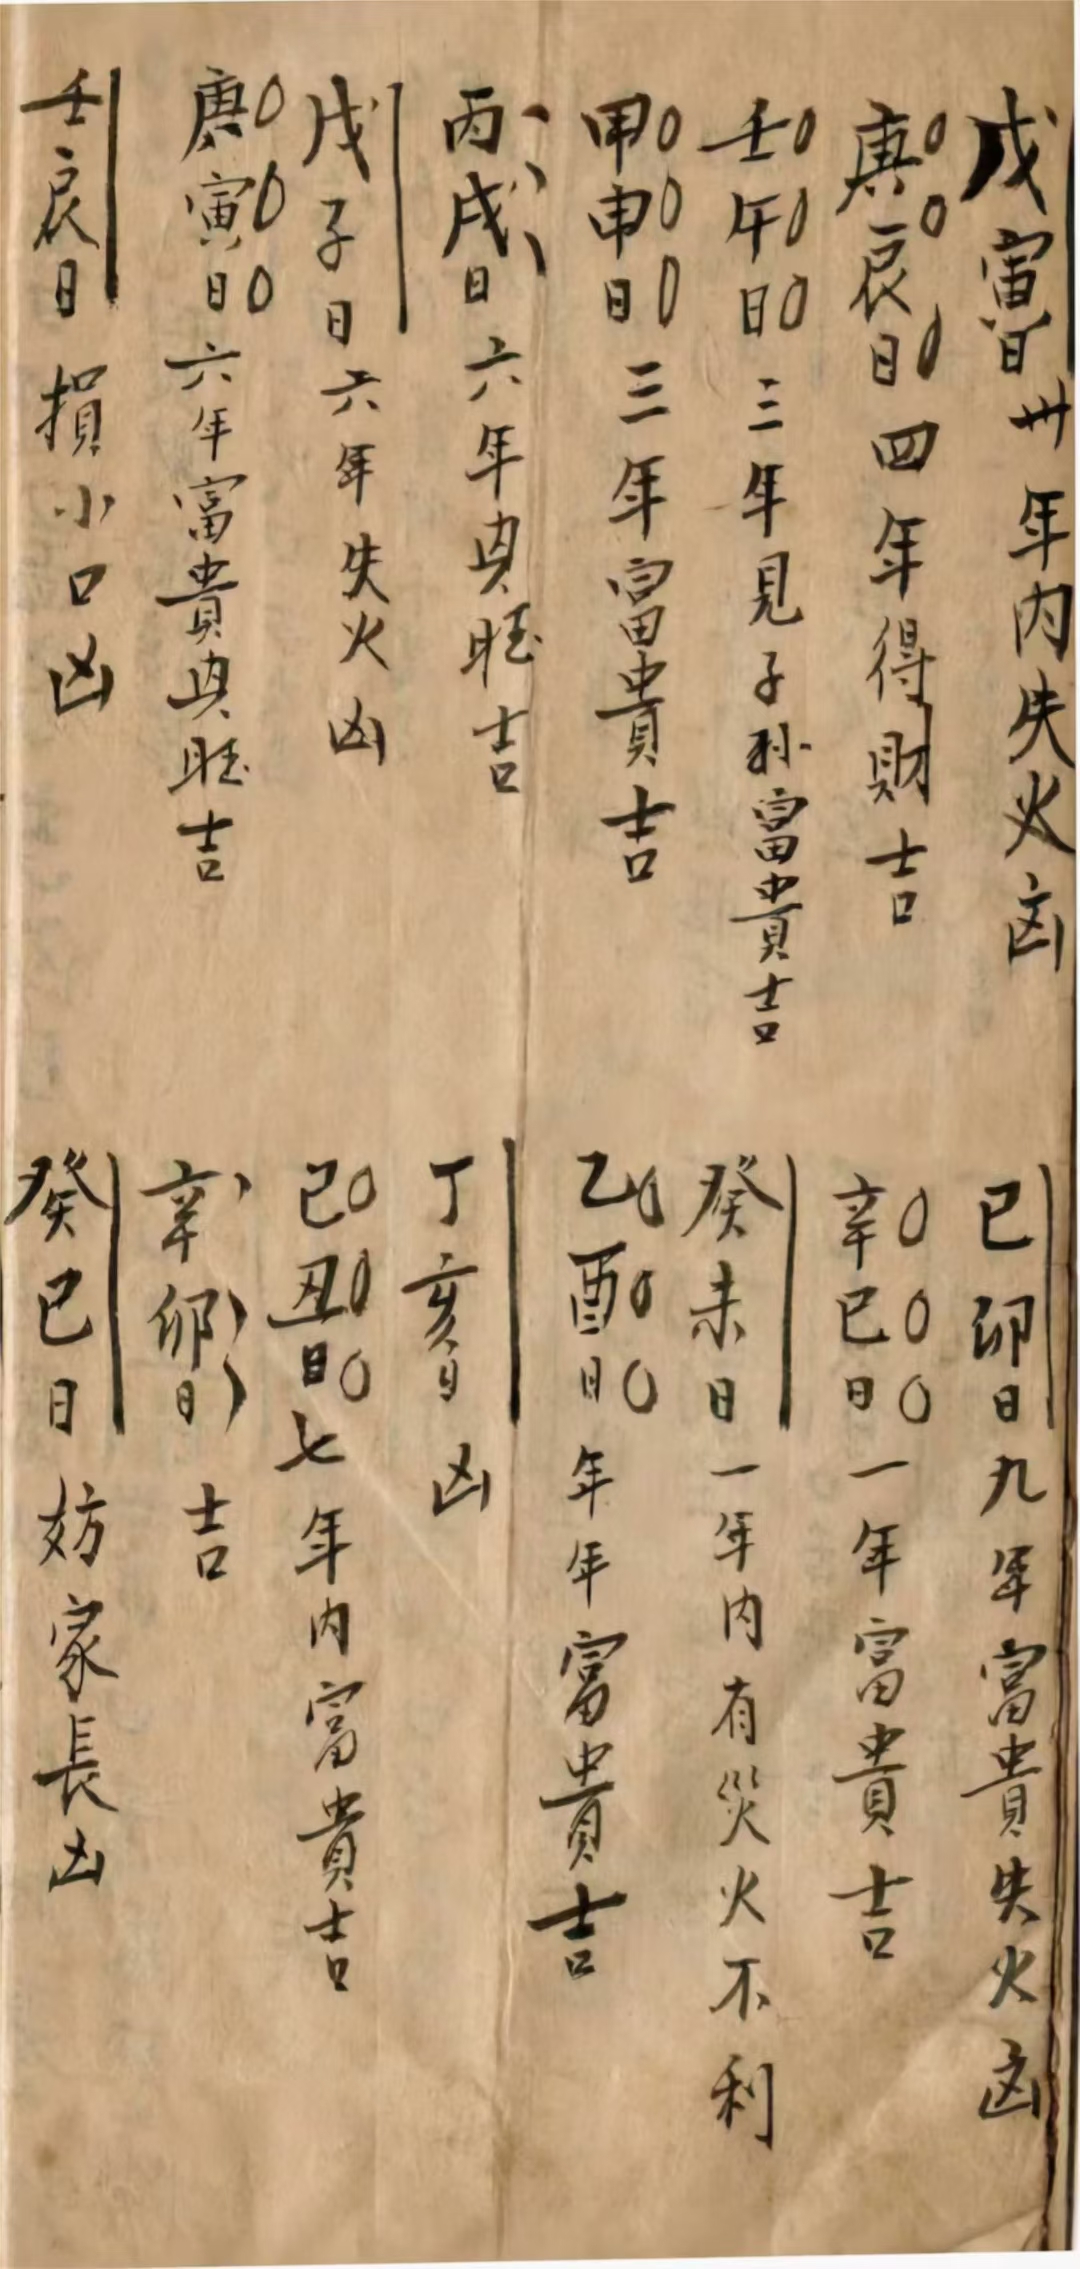 戊寅日卅年内失火凶
己卯日九年富貴失火凶
庚辰日四年得財吉
辛巳日一年富貴吉
壬午日三年見子孙富貴吉
癸未日一年内有災火不利
甲申日三年富貴吉
乙酉日年年富貴吉
丙戌日六年興旺吉
丁亥日凶
戊子日六年失火凶
己丑日七年内富貴吉
庚寅日六年富貴興旺吉
辛卯日吉
壬辰日損小口凶
癸巳日妨家長凶